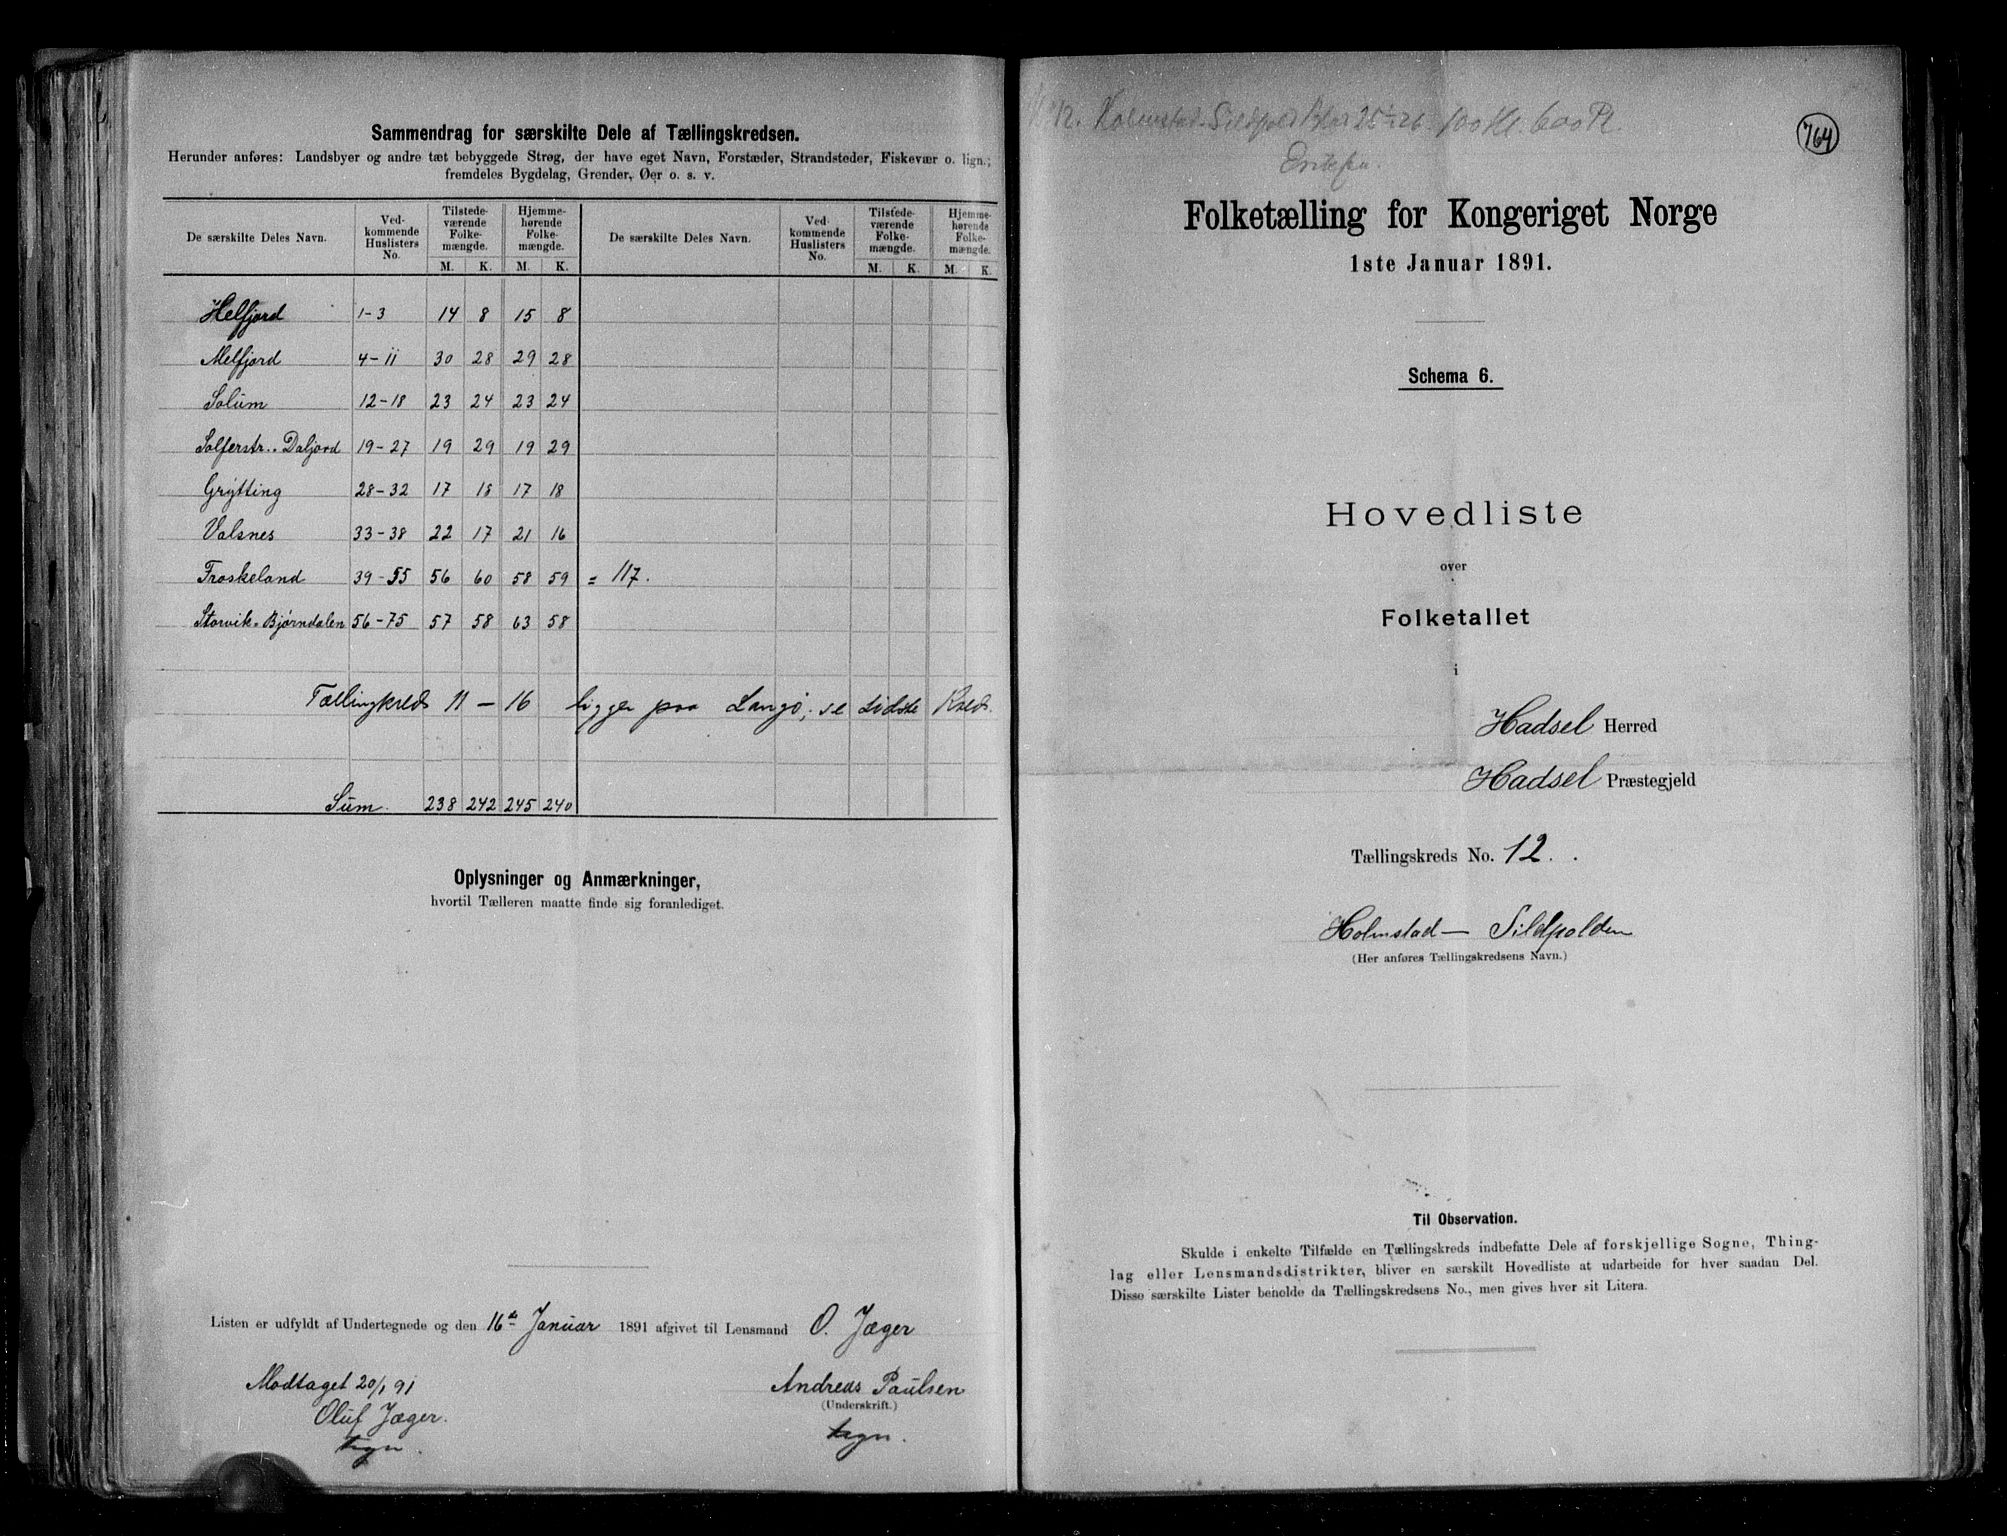 Sammendrag for særskilte Dele af Tællingskredsen.
Herunder anføres: Landsbyer og andre tæt bebyggede Strøg, der have eget Navn, Forstæder, Strandsteder, Fiskevær o. lign.;
fremdeles Bygdelag, Grender, Øer o. s. v.
De særskilte Deles Navn. Ved-kommende Huslisters No. Tilstede-værende Folke-mængde. Hjemme-hørende Folke-mængde. De særskilte Deles Navn. Ved-kommende Huslisters No. Tilstede-værende Folke-mængde. Hjemme-hørende Folke-mængde.
M. K. M. K. M. K. M. K.
Helfjord 1-3 14 8 15 8
Melfjord 4-11 30 28 29 28
Solum 12-18 23 24 23 24
Solferstr.. Daljord 19-27 19 29 19 29
Grytting 28-32 17 18 17 18
Valsnes 33-38 22 17 21 16
Froskeland 39-55 56 60 58 59 = 117.
Storvik = Bjørndalen 56-75 57 58 63 58
Tællingkreds 11 - 16 ligger paa Langø, se sidste Kreds.
Sum. 238 242 245 240
Oplysninger og Anmærkninger,
hvortil Tælleren maatte finde sig foranlediget.
Listen er udfyldt af Undertegnede og den 16de Januar 1891 afgivet til Lensmand O. Jæger
Modtaget 20/1 91
Oluf Jæger.
Andreas Paulsen
(Underskrift.)
764
12. Holmstad-Sildpold
Folketælling for Kongeriget Norge
1ste Januar 1891.
Schema 6.
Hovedliste
over
Folketallet
i
Hadsel Herred
Hadsel Præstegjeld
Tællingskreds No. 12.
Holmstad - Sildpolden
(Her anføres Tællingskredsens Navn.)
Til Observation.
Skulde i enkelte Tilfælde en Tællingskreds indbefatte Dele af forskjellige Sogne, Thing-
lag eller Lensmandsdistrikter, bliver en særskilt Hovedliste at udarbeide for hver saadan Del.
Disse særskilte Lister beholde da Tællingskredsens No., men gives hver sit Litera.